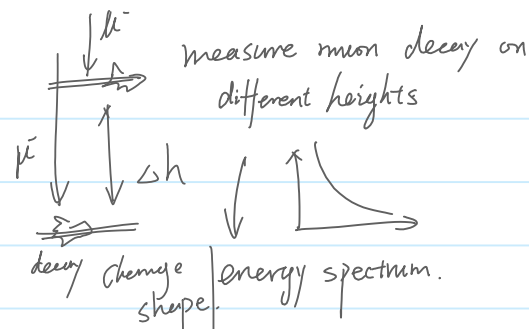 μ⁻
measure muon decay on
different heights
μ⁻
Δh
decay change shape.
energy spectrum.